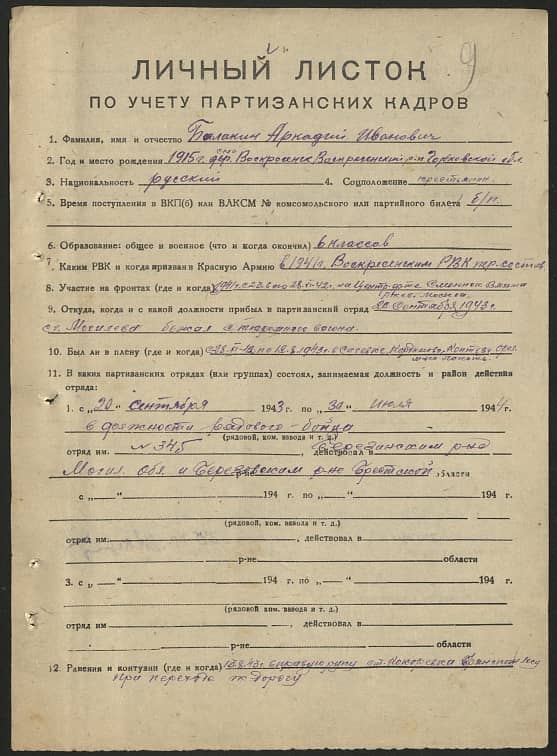 9
ЛИЧНЫЙ ЛИСТОК
ПО УЧЕТУ ПАРТИЗАНСКИХ КАДРОВ
1. Фамилия, имя и отчество Балакин Аркадий Иванович
2. Год и место рождения 1915 г. дер. Воскресенск Воскресенский р-н Горьковской обл
3. Национальность русский 4. Соцположение крестьянин
5. Время поступления в ВКП(б) или ВЛКСМ № комсомольского или партийного билета б/п.
6. Образование: общее и военное (что и когда окончил) 6 классов
7. Каким РВК и когда призван в Красную Армию в 1941 г. Воскресенским РВК
8. Участие на фронтах (где и когда) Смоленск Вязьма
Ржев. Москва.
9. Откуда, когда и с какой должности прибыл в партизанский отряд 20 сентября 1943 г.
ст. Могилева бежал с вагона.
10. Был ли в плену (где и когда)
11. В каких партизанских отрядах (или группах) состоял, занимаемая должность и район действия
отряда:
1. с „20“ сентября 1943 г. по „30“ июля 1944 г.
в должности рядового-бойца
(рядовой, ком. взвода и т. д.)
отряд им. № 345, действовал в Березинским р-не
Могил. обл. и Березовским р-не Брестской, области
с „—“ 194 г. по „—“ 194 г.
(рядовой, ком. взвода и т. д.)
отряд им. , действовал в
р-не области
3. с „—“ 194 г. по „—“ 194 г.
(рядовой, ком. взвода и т. д.)
отряд им , действовал в
р-не области
12. Ранения и контузии (где и когда) в правую руку
при переходе ж. дорогу